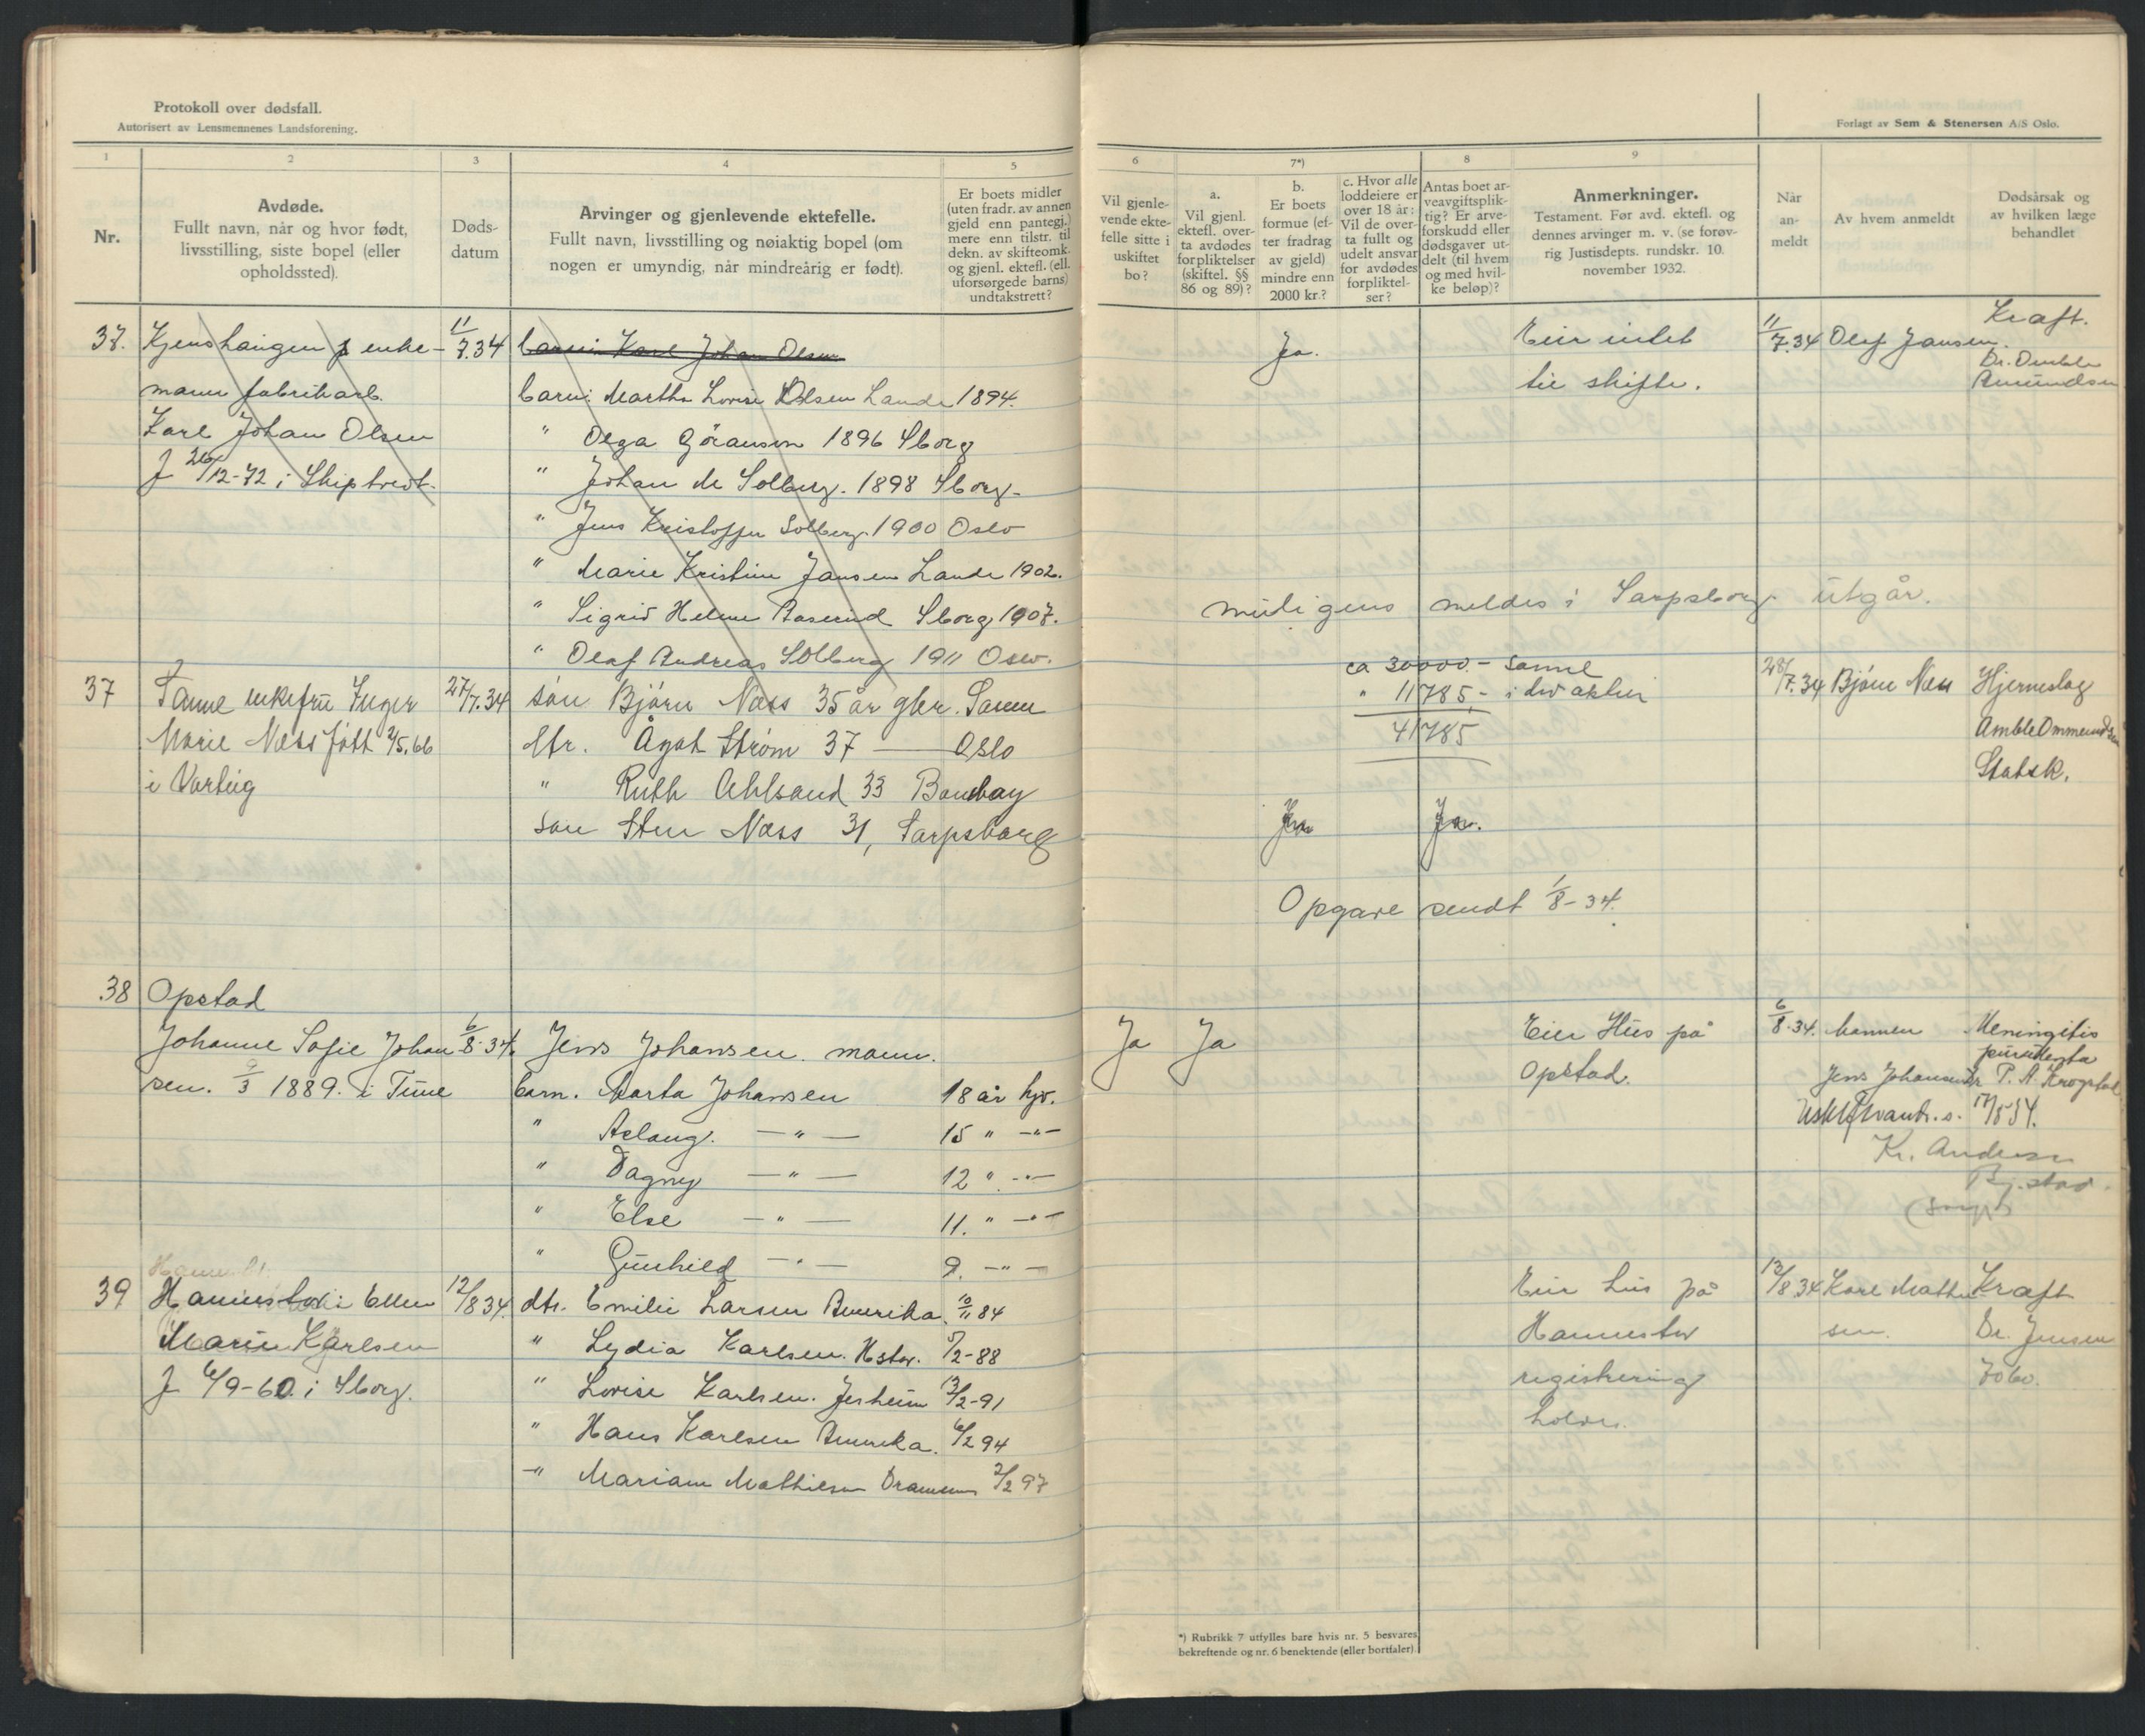 Protokoll over dødsfall.
Autorisert av Lensmennenes Landsforening.
Forlagt av Sem & Stenersen A/S Oslo.
1 2 3 4 5
Nr.
Avdøde.
Fullt navn, når og hvor født,
livsstilling, siste bopel (eller
opholdssted).
Døds-
datum
Arvinger og gjenlevende ektefelle.
Fullt navn, livsstilling og nøiaktig bopel (om
nogen er umyndig, når mindreårig er født).
Er boets midler
(uten fradr. av annen
gjeld enn pantegj.)
mere enn tilstr. til
dekn. av skifteomk.
og gjenl. ektefl. (ell.
uforsørgede barns)
undtakstrett?
6 7*) 8 9
Vil gjenle-
vende ekte-
felle sitte i
uskiftet
bo?
a.
Vil gjenl.
ektefl. over-
ta avdødes
forpliktelser
(skiftel. §§
86 og 89)?
b.
Er boets
formue (ef-
ter fradrag
av gjeld)
mindre enn
2000 kr.?
c. Hvor alle
loddeiere er
over 18 år:
Vil de over-
ta fullt og
udelt ansvar
for avdødes
forpliktel-
ser?
Antas boet ar-
veavgiftsplik-
tig? Er arve-
forskudd eller
dødsgaver ut-
delt (til hvem
og med hvil-
ke beløp)?
Anmerkninger.
Testament. Før avd. ektefl. og
dennes arvinger m. v. (se forøv-
rig Justisdepts. rundskr. 10.
november 1932.
Når
an-
meldt
Av hvem anmeldt
Dødsårsak og
av hvilken læge
behandlet
37. Kjenshaugen enke-
mann fabrikarb.
Karl Johan Olsen
f 26/12-72 i Skiptvedt.
11/7.34
barn: Karl Johan Olsen
barn: Martha Lovise Olsen Lande 1894.
" Olga Göranson 1896 Sborg
" Johan M Solberg. 1898 Sborg-
" Jens Kristoffer Solberg. 1900 Oslo
" Marie Kristine Jansen Lande 1902.
" Sigrid Helene Aaserud Sborg 1907.
" Olaf Andreas Solberg 1911 Oslo.
Ja.
Eier intet
til skifte.
11/7.34 Olaf Jansen.
Kraft.
Dr. Omble
Amundsen
muligens meldes i Sarpsborg utgår.
37 Tanne enkefru Inger
Marie Næss født 2/5.66
i Varteig
27/7.34
søn Bjørn Næss 35 år gbr. Tanne
dtr. Ågot Strøm 37 — Oslo
" Ruth Ahlsand 33 Bombay
søn Sten Næss 31, Sarpsborg
ca 30000.- Sanne
" 11785,- i div aktier
41785
Ja Ja.
Opgave sendt 1/8-34.
28/7.34 Bjørn Næss
Hjerneslag
Amble Ommundsen
Statsk.
38 Opstad
Johanne Sofie Johan
sen. 9/3 1889. i Tune
6/8-34.
Jens Johansen. mann.
barn. Marta Johansen 18 år hjv.
" Aslaug. — " — 15 " —"—
" Dagny — " — 12 " —"—
" Else — " — 11. " —"—
" Gunhild — " — 9. —"—
Ja Ja
Eier Hus på
Opstad.
6/8-34. Mannen
Jens Johansen
Meningitis
Dr P. A. Krogstad
17/8 34.
Kr. Andersen
39 Hannestad Ellen
Marie Karlsen
f 6/9-60. i Sborg.
12/8 34.
dtr. Emilie Larsen Amerika. 10/11 84
" Lydia Karlsen. Hstad. 5/2-88
" Lovise Karlsen. Jesheim 13/2-91
" Hans Karlsen Amerika. 6/2 94
" Mariam Mathisen Drammen 2/2 97
Eier hus på
Hannestad
registrering
holdes.
13/8 34 Karl Mathi
sen.
Kraft
Dr. Jensen
*) Rubrikk 7 utfylles bare hvis nr. 5 besvares
bekreftende og nr. 6 benektende (eller bortfaler).